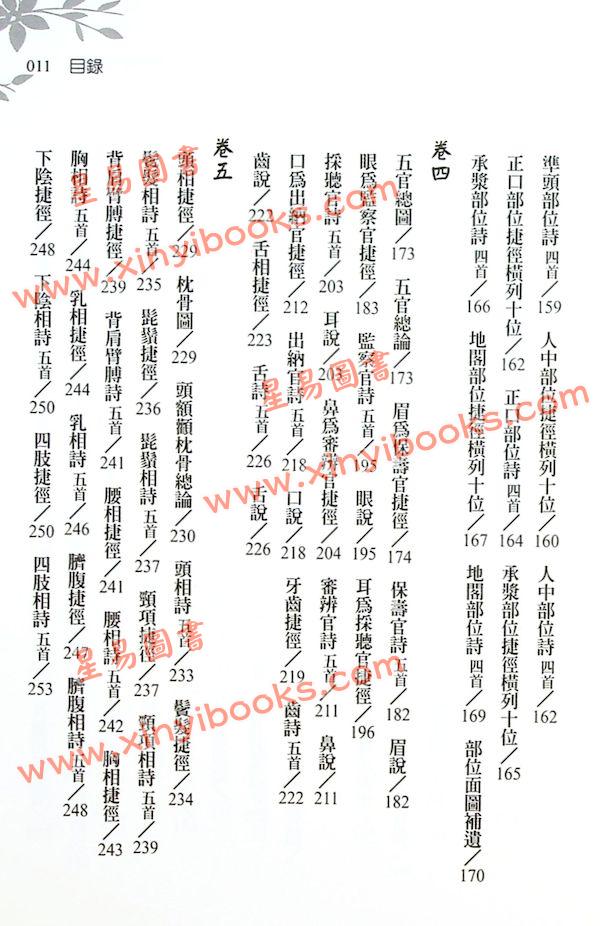 011 目錄
準頭部位詩 四首／159 人中部位捷徑橫列十位／160 人中部位詩 四首／162
正口部位捷徑橫列十位／162 正口部位詩 四首／164 承漿部位捷徑橫列十位／165
承漿部位詩 四首／166 地閣部位捷徑橫列十位／167 地閣部位詩 四首／169 部位面圖補遺／170
卷四
五官總圖／173 五官總論／173 眉為保壽官捷徑／174 保壽官詩 五首／182 眉說／182
眼為監察官捷徑／183 監察官詩 五首／195 眼說／195 耳為採聽官捷徑／196
採聽官詩 五首／203 耳說／203 鼻為審辨官捷徑／204 審辨官詩 五首／211 鼻說／211
口為出納官捷徑／212 出納官詩 五首／218 口說／218 牙齒捷徑／219 齒詩 五首／222
齒說／222 舌相捷徑／223 舌詩 五首／226 舌說／226
卷五
頭相捷徑／229 枕骨圖／229 頭額顱枕骨總論／230 頭相詩 五首／233 鬢髮捷徑／234
鬢髮相詩 五首／235 髭鬚捷徑／236 髭鬚相詩 五首／237 頸項捷徑／237 頸項相詩 五首／239
背肩臂膊捷徑／239 背肩臂膊詩 五首／241 腰相捷徑／241 腰相詩 五首／242 胸相捷徑／243
胸相詩 五首／244 乳相捷徑／244 乳相詩 五首／246 臍腹捷徑／247 臍腹相詩 五首／248
下陰捷徑／248 下陰相詩 五首／250 四肢捷徑／250 四肢相詩 五首／253
星易圖書
www.xinyibooks.com
星易圖書
www.xinyibooks.com
星易圖書
www.xinyibooks.com